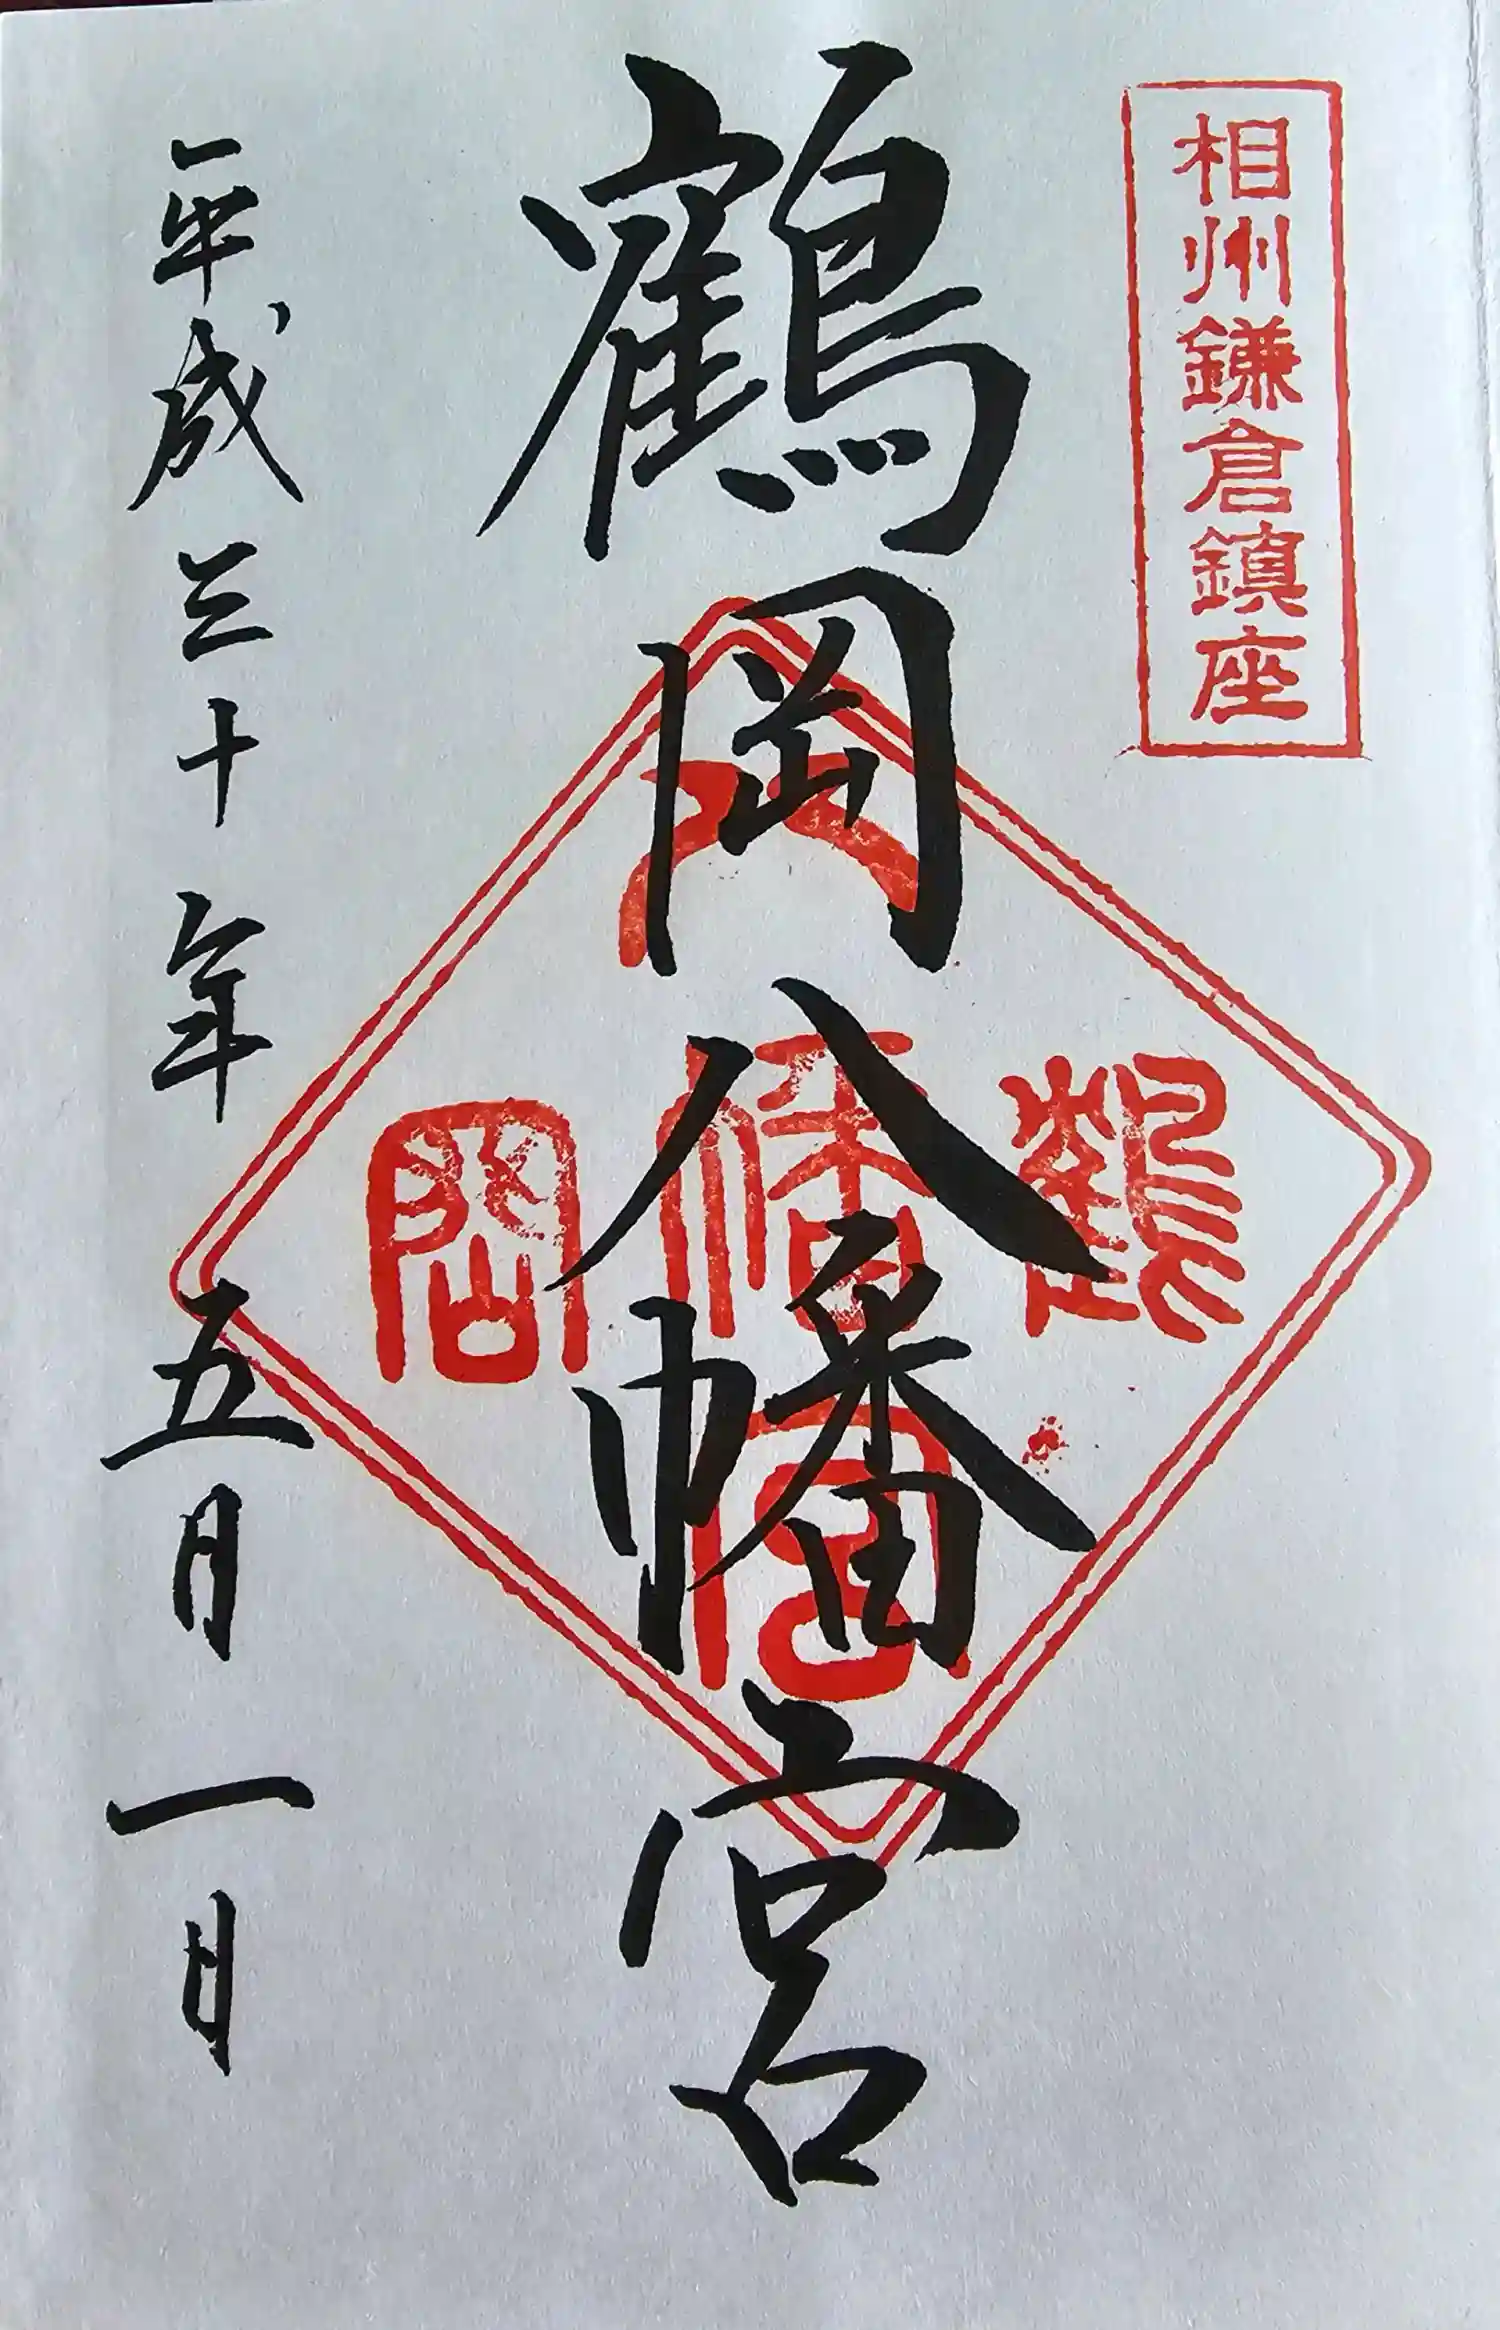 相州鎌倉鎮座
鶴岡八幡宮
八
鶴幡岡
宮
平成三十年五月一日